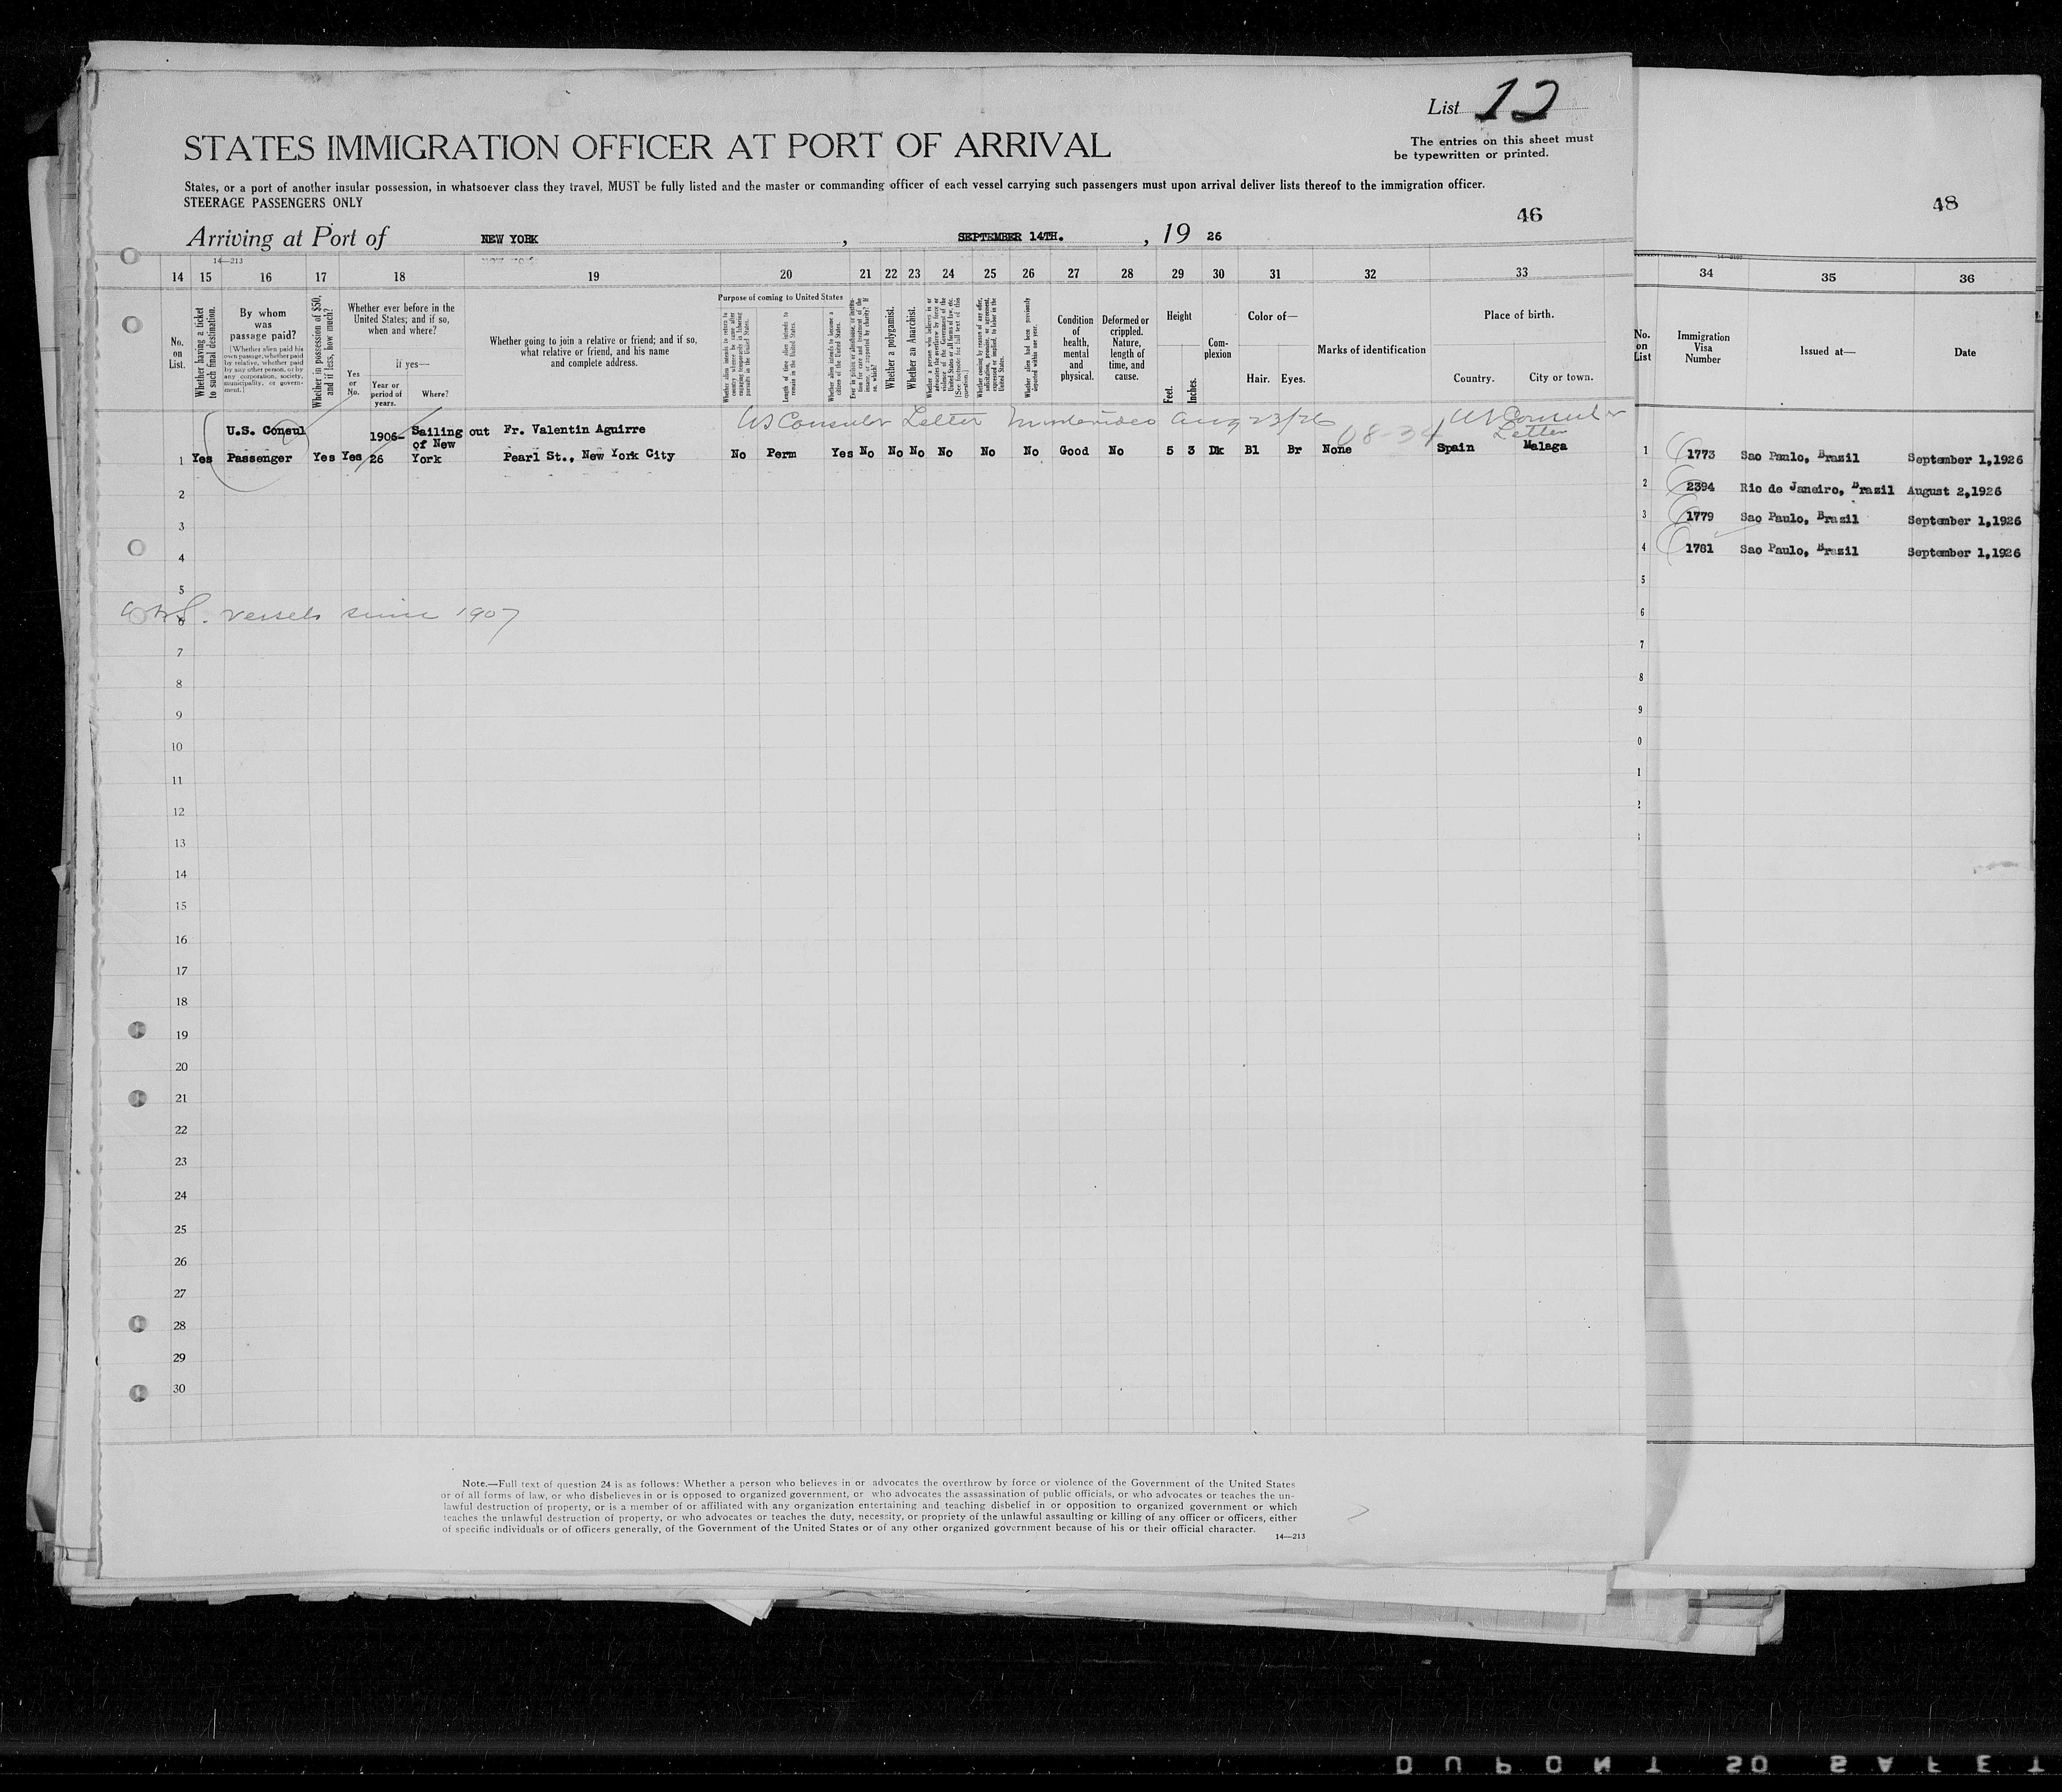 List 12
STATES IMMIGRATION OFFICER AT PORT OF ARRIVAL
The entries on this sheet must
be typewritten or printed.
States, or a port of another insular possession, in whatsoever class they travel, MUST be fully listed and the master or commanding officer of each vessel carrying such passengers must upon arrival deliver lists thereof to the immigration officer.
STEERAGE PASSENGERS ONLY
46
Arriving at Port of NEW YORK , SEPTEMBER 14TH. , 19 26
14—213
14 15 16 17 18 19 20 21 22 23 24 25 26 27 28 29 30 31 32 33
No. on List.
Whether having a ticket to such final destination.
By whom was passage paid?
[Whether alien paid his own passage, whether paid by relative, whether paid by any other person, or by any corporation, society, municipality, or government.]
Whether in possession of $50, and if less, how much?
Whether ever before in the United States; and if so, when and where?
Yes or No.
If yes—
Year or period of years.
Where?
Whether going to join a relative or friend; and if so, what relative or friend, and his name and complete address.
Purpose of coming to United States
Length of time alien intends to remain in the United States.
Whether alien intends to become a citizen of the United States.
Whether a polygamist.
Whether an Anarchist.
Condition of health, mental and physical.
Deformed or crippled. Nature, length of time, and cause.
Height
Feet. Inches.
Complexion
Color of—
Hair. Eyes.
Marks of identification
Place of birth.
Country. City or town.
US Consular Letter Montevideo Aug 23/26
08-34
US Consular
Letter
U.S. Consul 1906- Sailing out Fr. Valentin Aguirre
of New
1 Yes Passenger Yes Yes 26 York Pearl St., New York City No Perm Yes No No No No No No Good No 5 3 Dk Bl Br None Spain Malaga
2
3
4
5
vessels since 1907
6
7
8
9
10
11
12
13
14
15
16
17
18
19
20
21
22
23
24
25
26
27
28
29
30
Note.—Full text of question 24 is as follows: Whether a person who believes in or advocates the overthrow by force or violence of the Government of the United States
or of all forms of law, or who disbelieves in or is opposed to organized government, or who advocates the assassination of public officials, or who advocates or teaches the un-
lawful destruction of property, or is a member of or affiliated with any organization entertaining and teaching disbelief in or opposition to organized government or which
teaches the unlawful destruction of property, or who advocates or teaches the duty, necessity, or propriety of the unlawful assaulting or killing of any officer or officers, either
of specific individuals or of officers generally, of the Government of the United States or of any other organized government because of his or their official character.
14—213
48
34 35 36
No. on List
Immigration Visa Number
Issued at—
Date
1 1773 Sao Paulo, Brazil September 1,1926
2 2394 Rio de Janeiro, Brazil August 2,1926
3 1779 Sao Paulo, Brazil September 1,1926
4 1781 Sao Paulo, Brazil September 1,1926
5
6
7
8
9
0
1
2
DUPONT SO SAFET